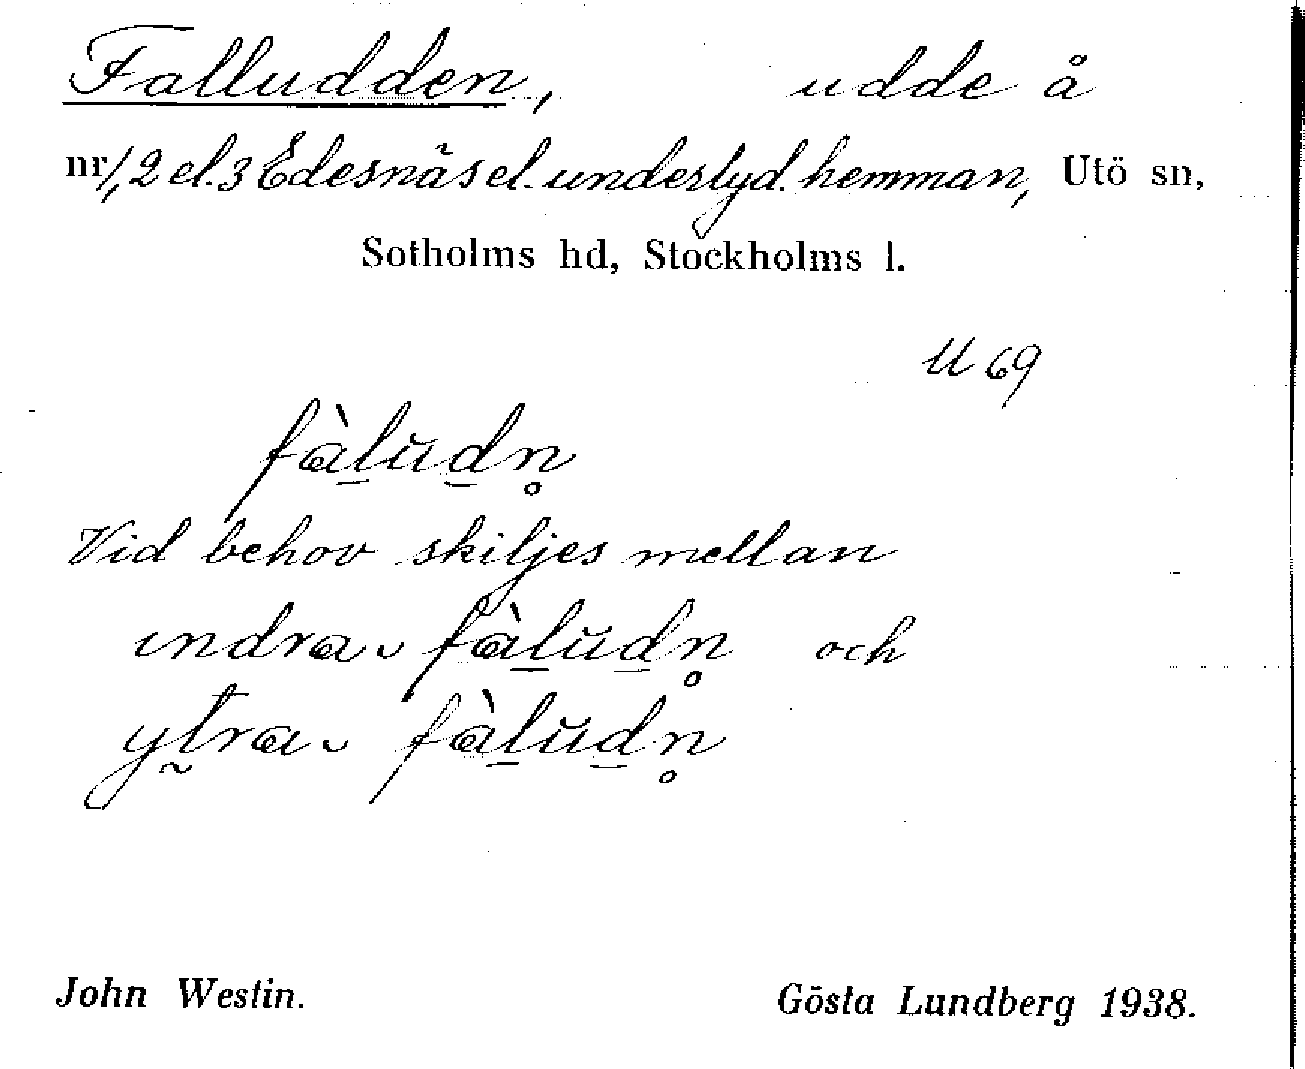 Falludden, udde å
nr 1, 2 el. 3 Edesnäs el. underlyd. hemman, Utö sn,
Sotholms hd, Stockholms l.
U 69
fàlŭdn̥
Vid behov skiljes mellan
ındra fàlŭdn̥ och
ytra fàlŭdn̥
John Westin. Gösta Lundberg 1938.